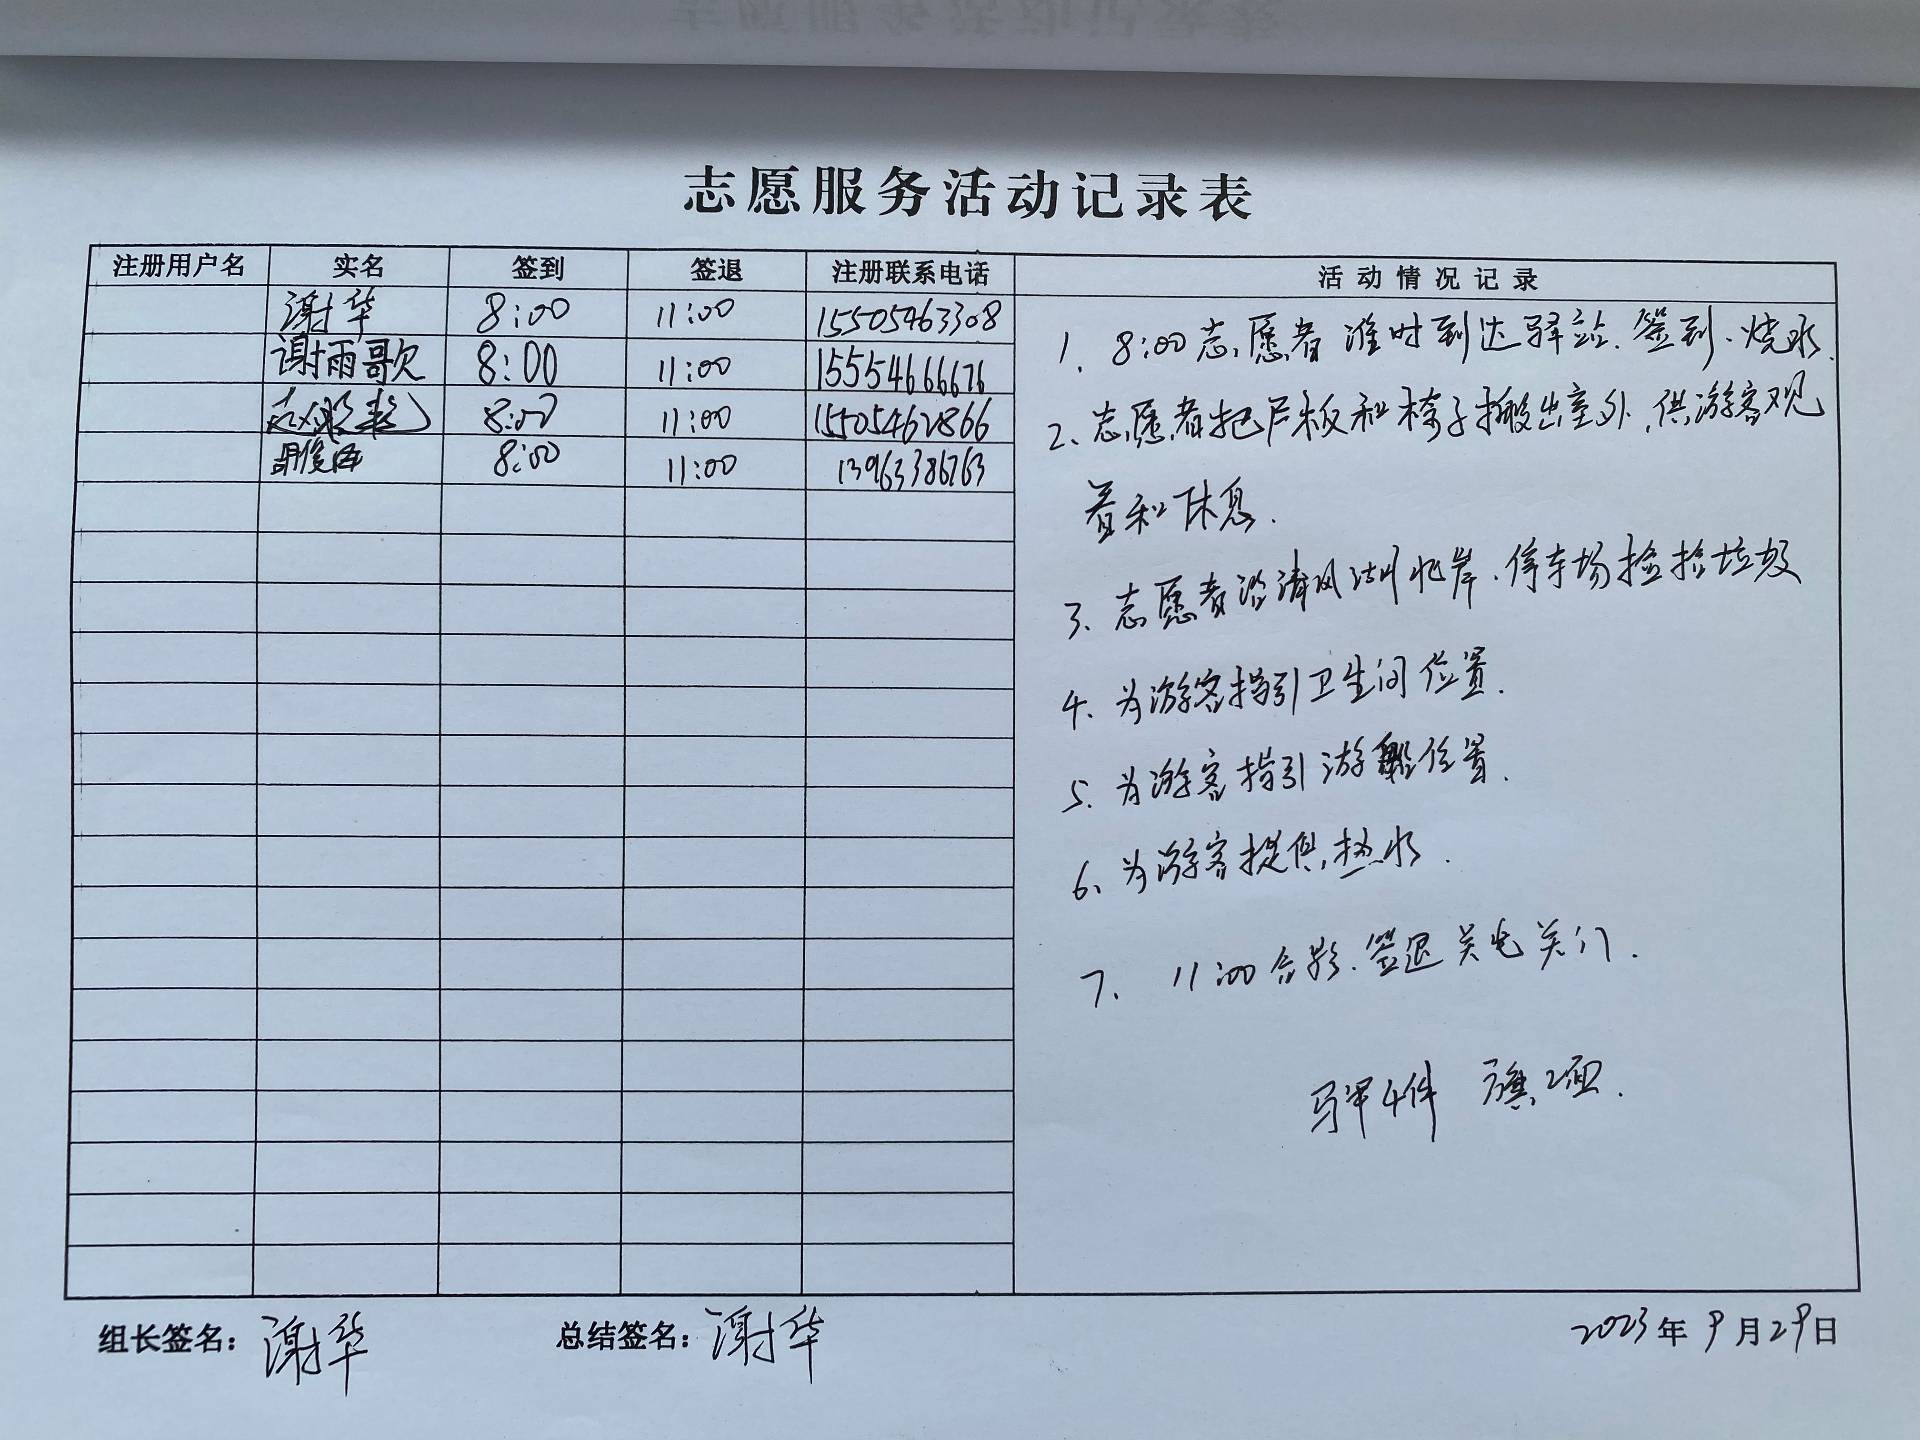 志愿服务活动记录表
注册用户名 实名 签到 签退 注册联系电话 活动情况记录
谢华 8:00 11:00 15505463308
谢雨歌 8:00 11:00 15554666676
赵 8:00 11:00 15505462866
胡俊 8:00 11:00 13963386763
1. 8:00志愿者准时到达驿站.签到.烧水.
2、志愿者把展板和椅子搬出室外,供游客观
看和休息.
3、志愿者沿清风湖北岸.停车场捡拾垃圾
4、为游客指引卫生间位置.
5、为游客指引游船位置.
6、为游客提供热水.
7、11:00合影.签退关电关门.
4件 旗2面.
组长签名:谢华 总结签名:谢华 2023年9月29日